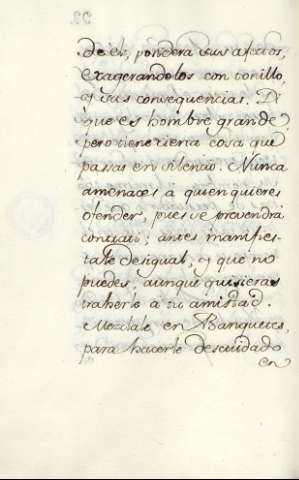 de el, pondera sus afectos,
exagerandolos con tonillo,
y sus consequencias. Di
que es hombre grande,
pero tiene cierta cosa que
passas en silencio. Nunca
amenaces à quien quieres
ofender, pues se prevendrà
contrati; antes manifies-
tale desigual, y que no
puedes, aunque quisieras
traherle à tu amistad.
Mezclale en Banquetes,
para hacerle descuidado
en